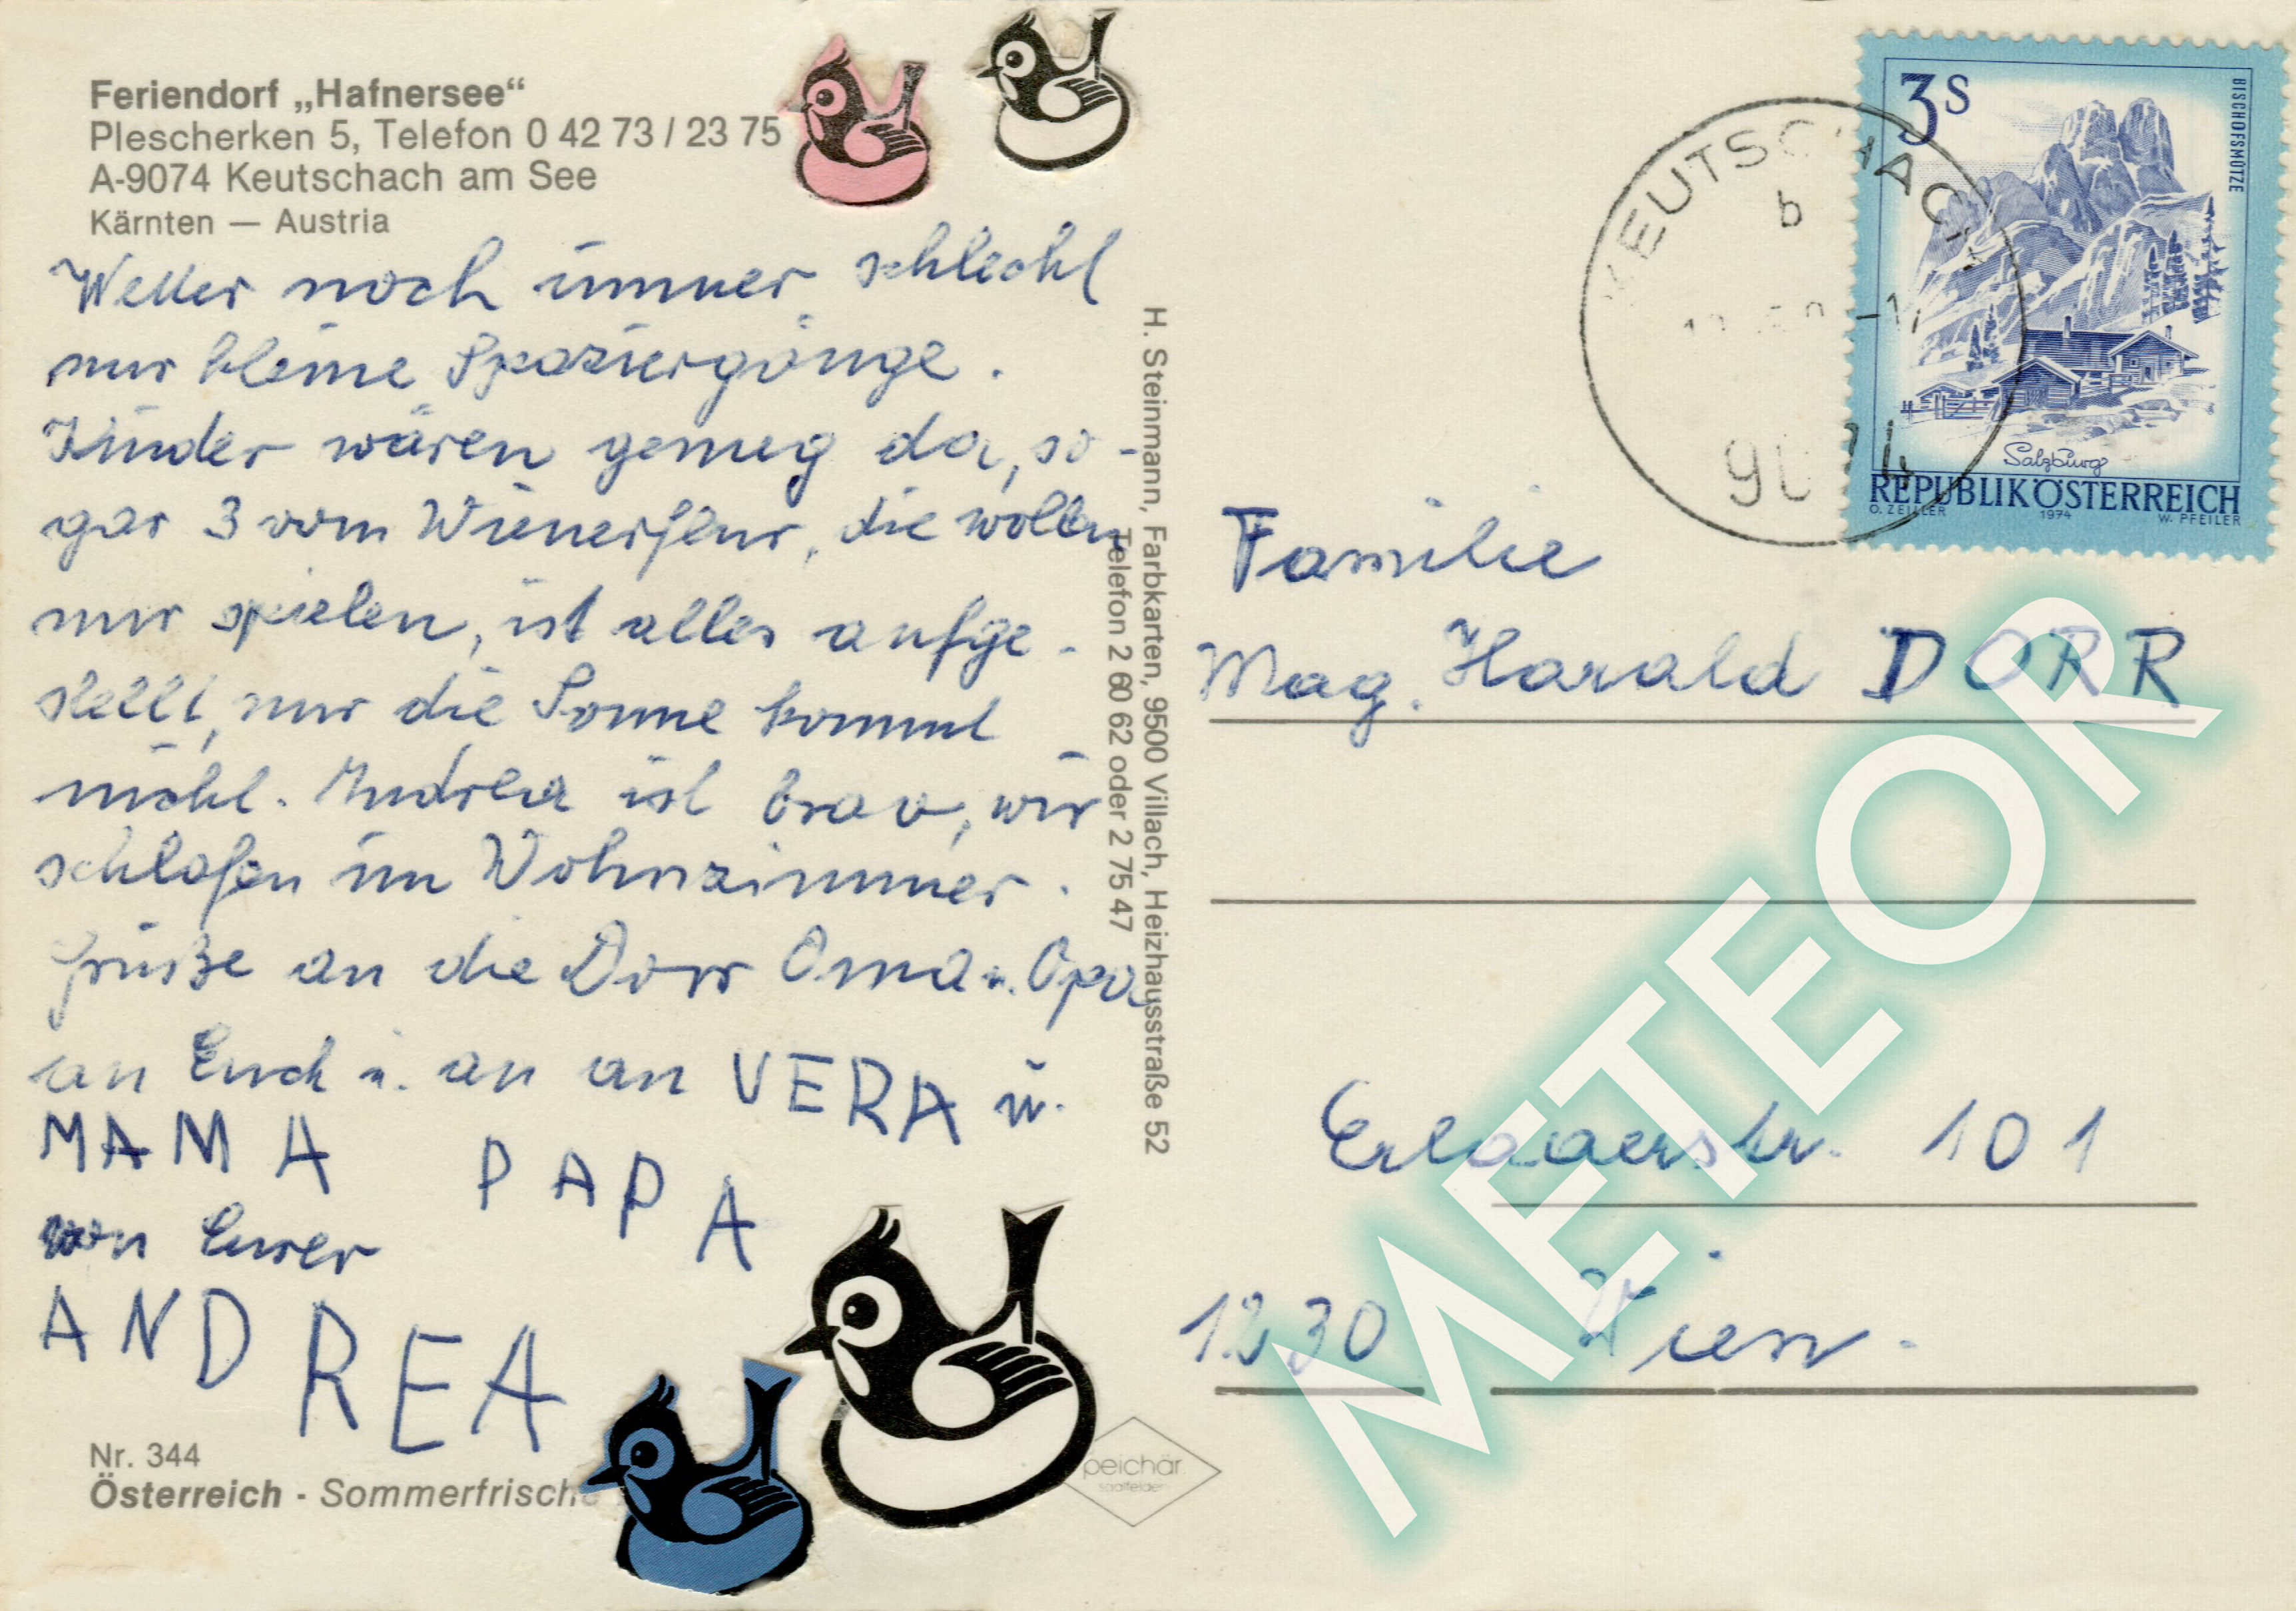 Feriendorf „Hafnersee“
Plescherken 5, Telefon 0 42 73 / 23 75
A-9074 Keutschach am See
Kärnten — Austria
Wetter noch immer schlecht
nur kleine Spaziergänge.
Kinder wären genug da, so-
gar 3 vom Wienerflur, die wollen
nur spielen, ist alles aufge-
stellt, nur die Sonne kommt
nicht. Andrea ist brav, wir
schlafen im Wohnzimmer.
Grüße an die Dorr Oma u. Opa
an Euch u. an an VERA u.
MAMA PAPA
von Eurer
ANDREA
Nr. 344
Österreich - Sommerfrische
H. Steinmann, Farbkarten, 9500 Villach, Heizhausstraße 52
Telefon 2 60 62 oder 2 75 47
peichär
saalfelden
KEUTSCHACH
b
3S
BISCHOFSMÜTZE
Salzburg
REPUBLIK ÖSTERREICH
O. ZEILLER 1974 W. PFEILER
Familie
Mag. Harald DORR
Erlaaerstr. 101
1230 Wien.
METEOR